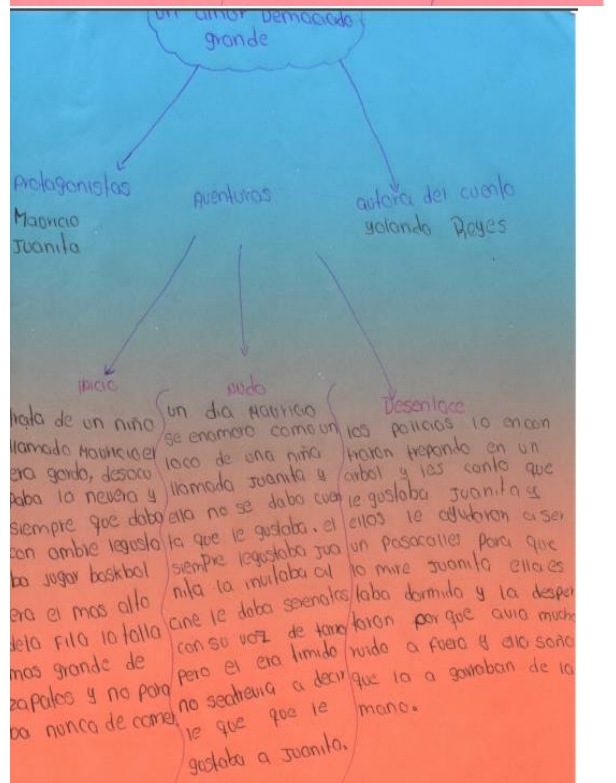 un amor Demaciado
grande
Protagonistas
Mauricio
Juanita
Aventuras
autora del cuento
yolanda Reyes
inicio
trata de un niño
llamado Mauricio el
era gordo, desocu
paba la nevera y
siempre que daba
con ambre legusta
ba jugar baskbol
era el mas alto
dela Fila la talla
mas grande de
zapatos y no para
ba nunca de comer
Nudo
un dia Mauricio
se enamoro como un
loco de una niña
llamada Juanita y
ella no se daba cuen
ta que le gustaba. el
siempre legustaba Jua
nita la invitaba al
cine le daba serenatas
con su voz de tarro
pero el era timido
no seatrevia a decir
le que que le
gustaba a Juanita.
Desenlace
los policias lo encon
traron trepando en un
arbol y les conto que
le gustaba Juanita y
ellos le ayudaron a ser
un Pasacalles Para que
lo mire Juanita ella es
taba dormida y la desper
taron por que avia mucho
ruido a fuera y ella soño
que la a garraban de la
mano.